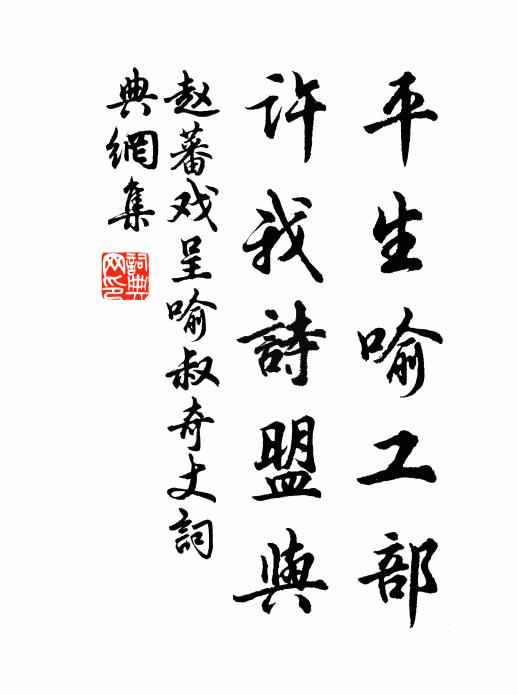 平生喻工部
许我詩盟與
赵蕃戏呈喻叔奇丈詞
典網集
詞典
网印